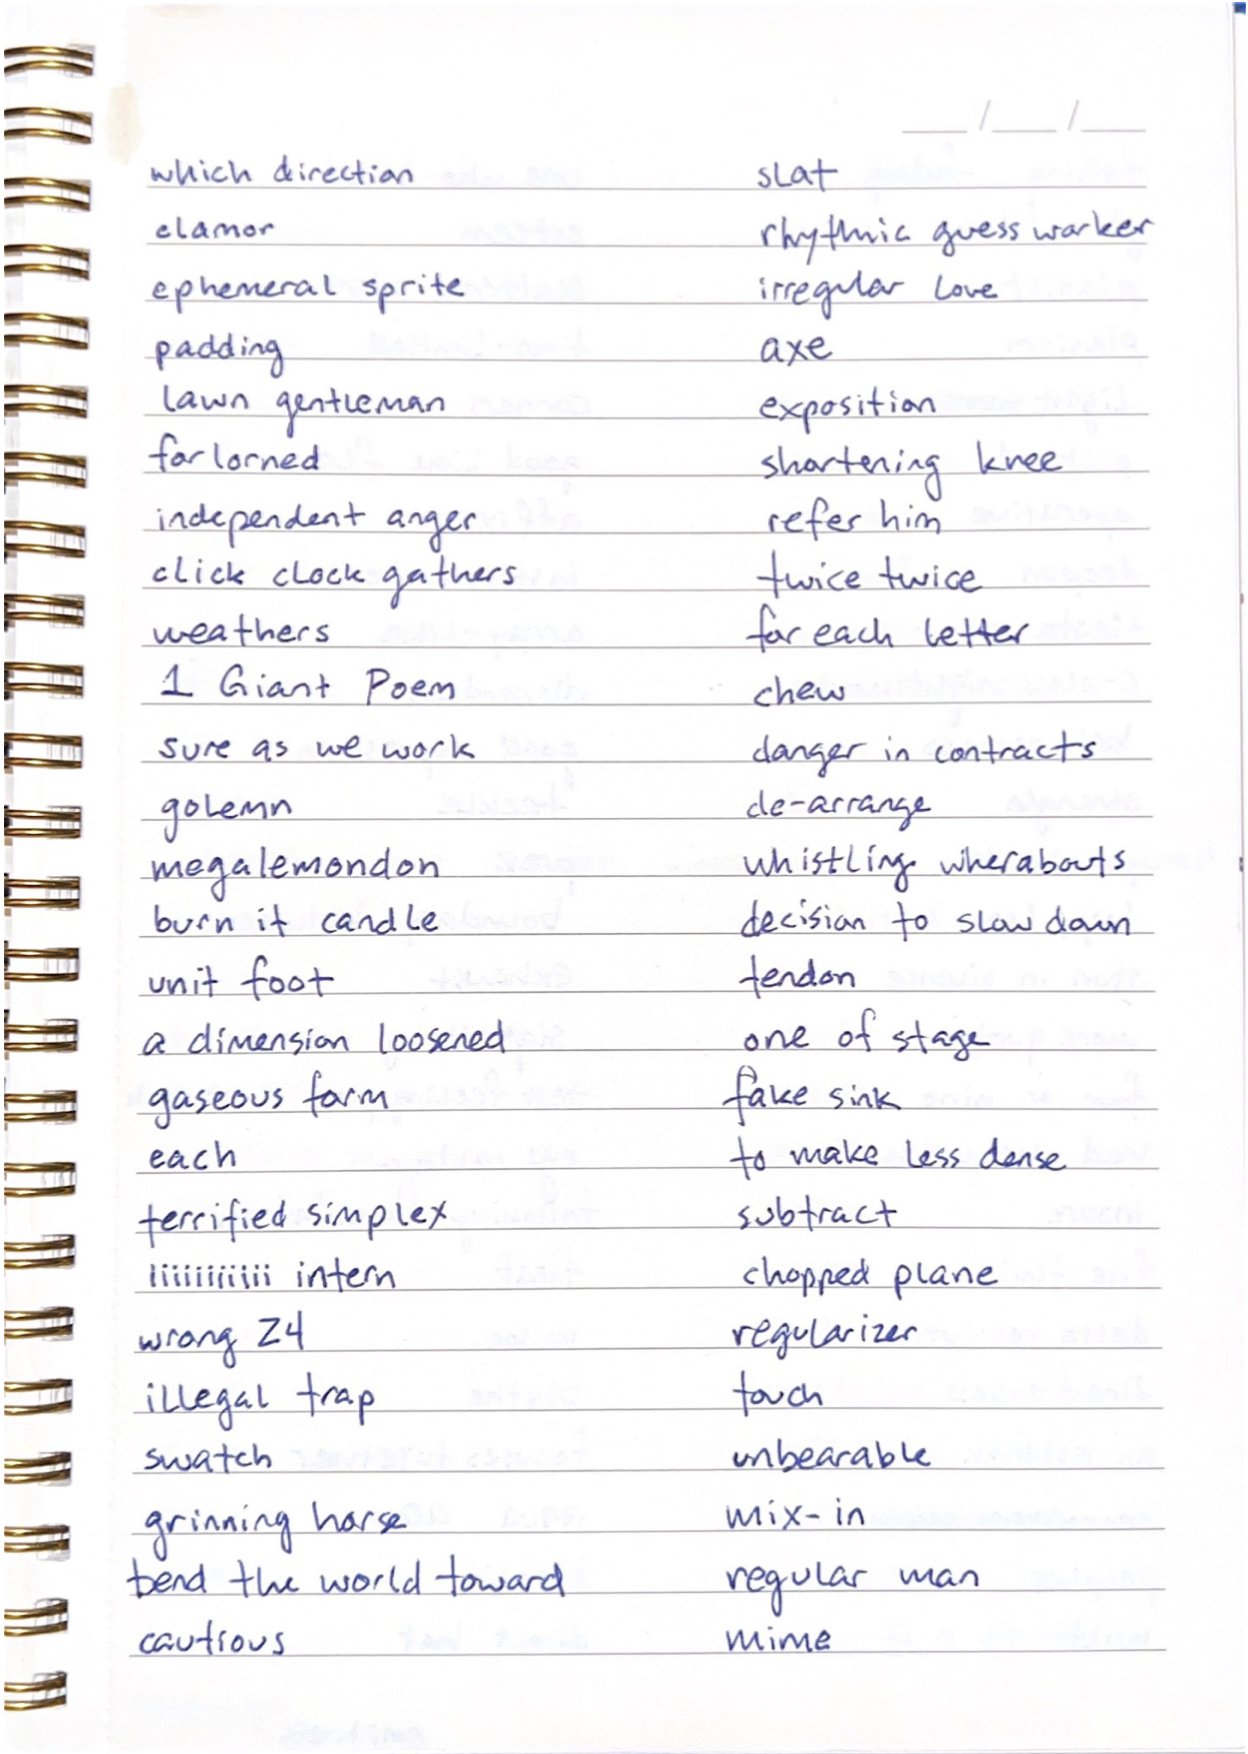 which direction
clamor
ephemeral sprite
padding
lawn gentleman
forlorned
independent anger
click clock gathers
weathers
1 Giant Poem
sure as we work
golemn
megalemondon
burn it candle
unit foot
a dimension loosened
gaseous form
each
terrified simplex
iiiiiiiiiii intern
wrong Z4
illegal trap
swatch
grinning horse
bend the world toward
cautious
slat
rhythmic guess worker
irregular love
axe
exposition
shortening knee
refer him
twice twice
for each letter
chew
danger in contracts
de-arrange
whistling wherabouts
decision to slow down
tendon
one of stage
fake sink
to make less dense
subtract
chopped plane
regularizer
touch
unbearable
mix-in
regular man
mime